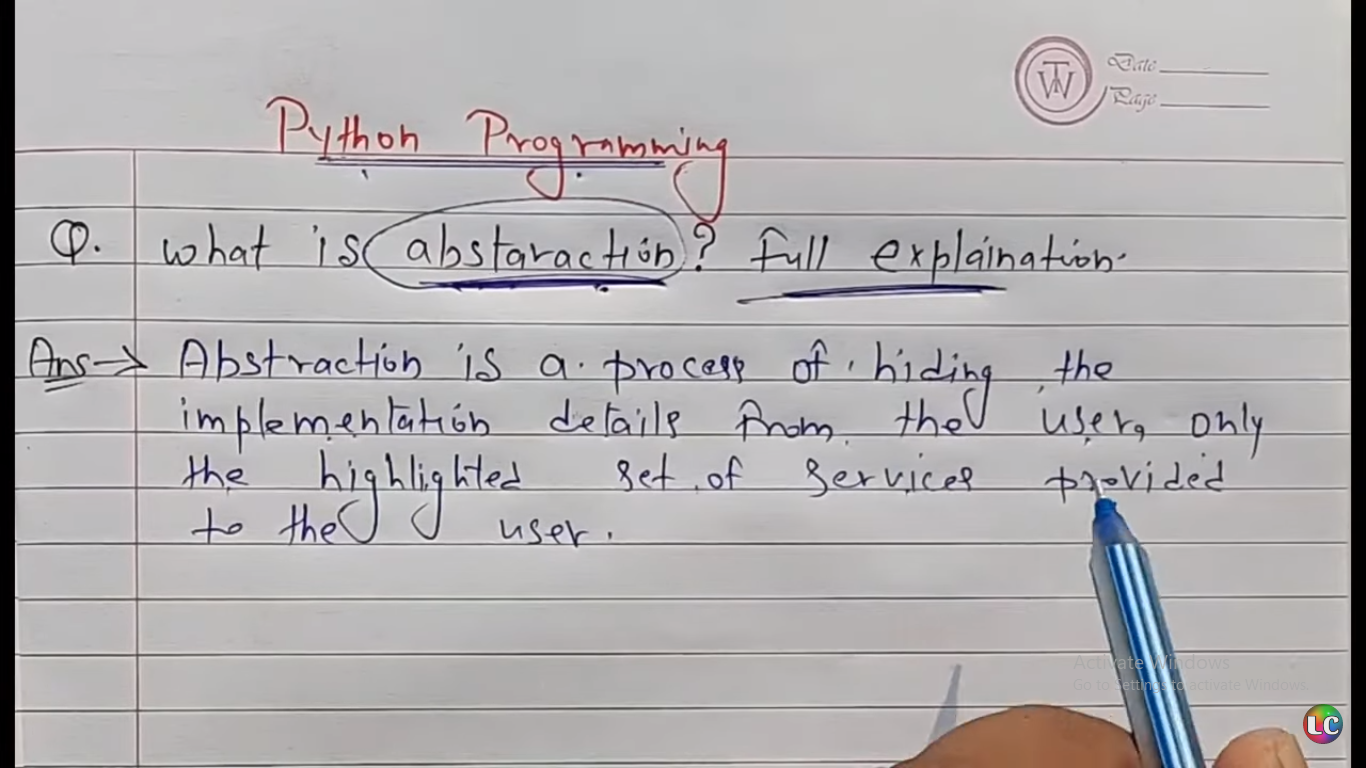 Date
Page
Python Programming
Q. what is abstaraction? full explaination.
Ans→ Abstraction is a process of hiding the
implementation details from the user, only
the highlighted set of services provided
to the user.
Activate Windows
Go to Settings to activate Windows.
LC